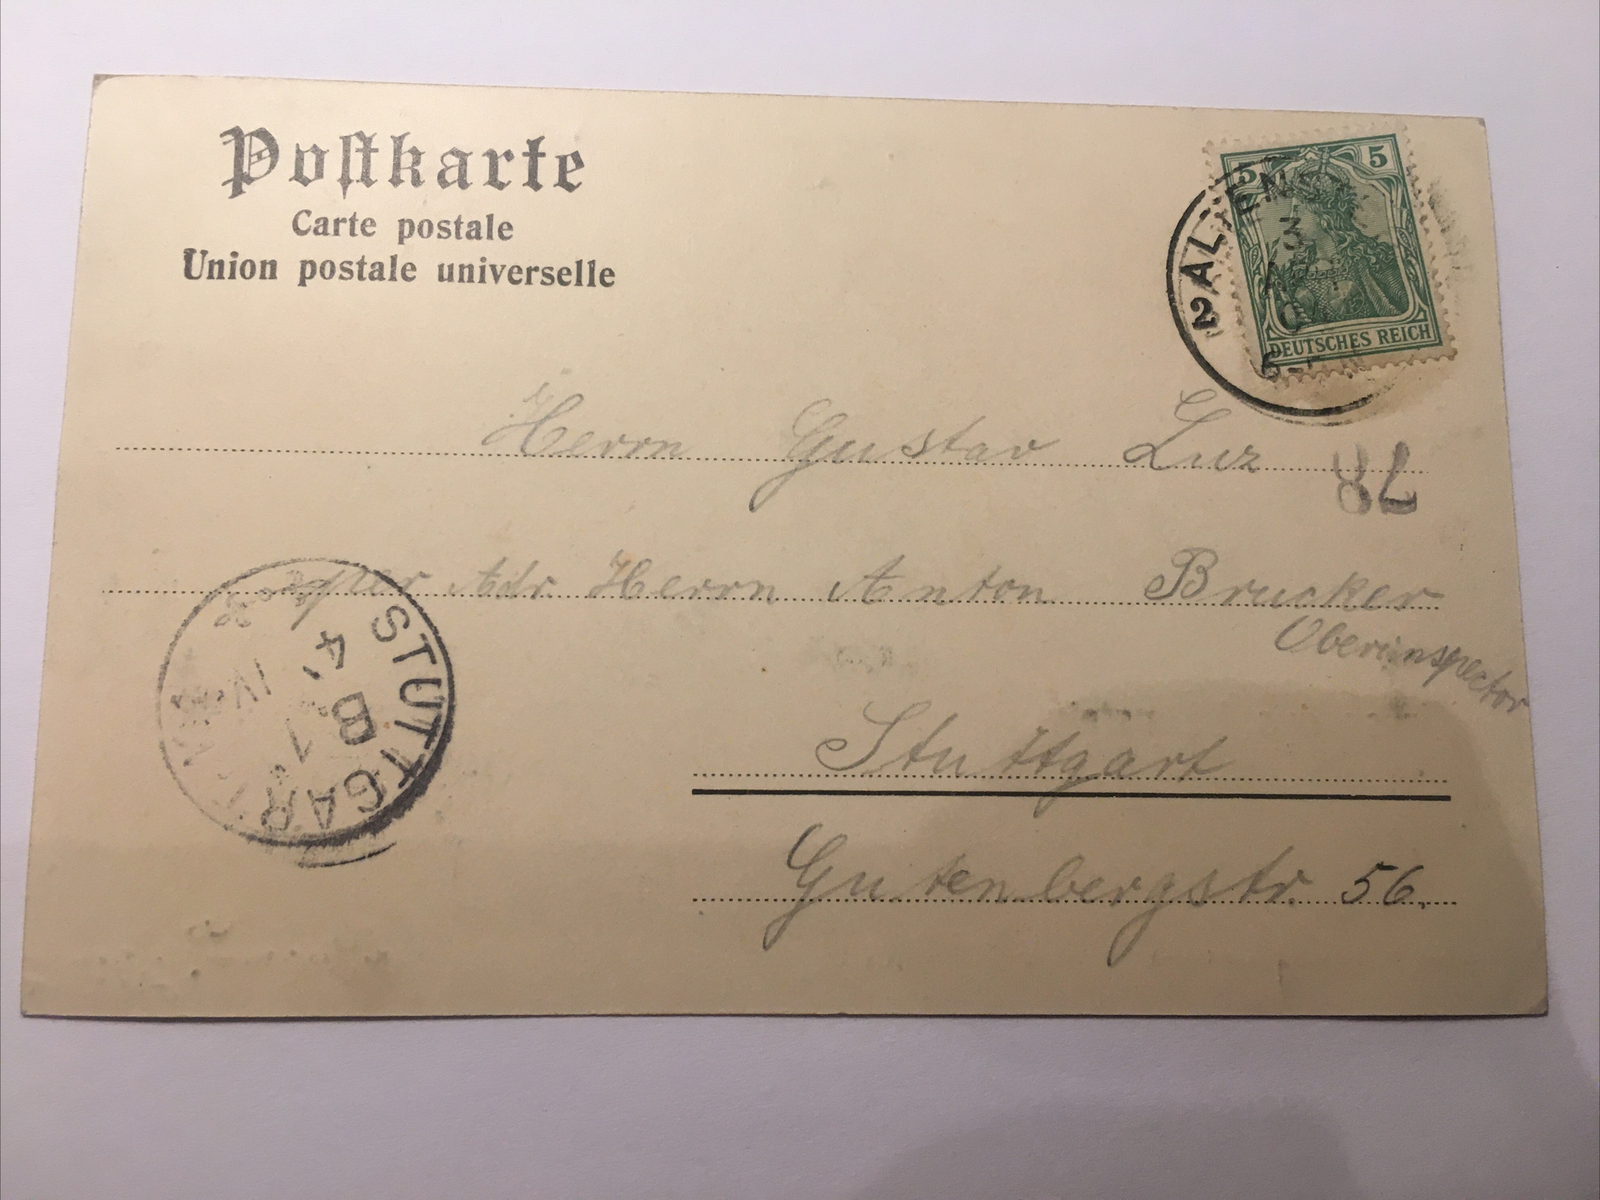 Postkarte
Carte postale
Union postale universelle
5 5
DEUTSCHES REICH
Herrn Gustav Luz
78
per Adr. Herrn Anton Brucker
Oberinspector
Stuttgart
Gutenbergstr. 56.
STUTTGART
4
IV
B 1